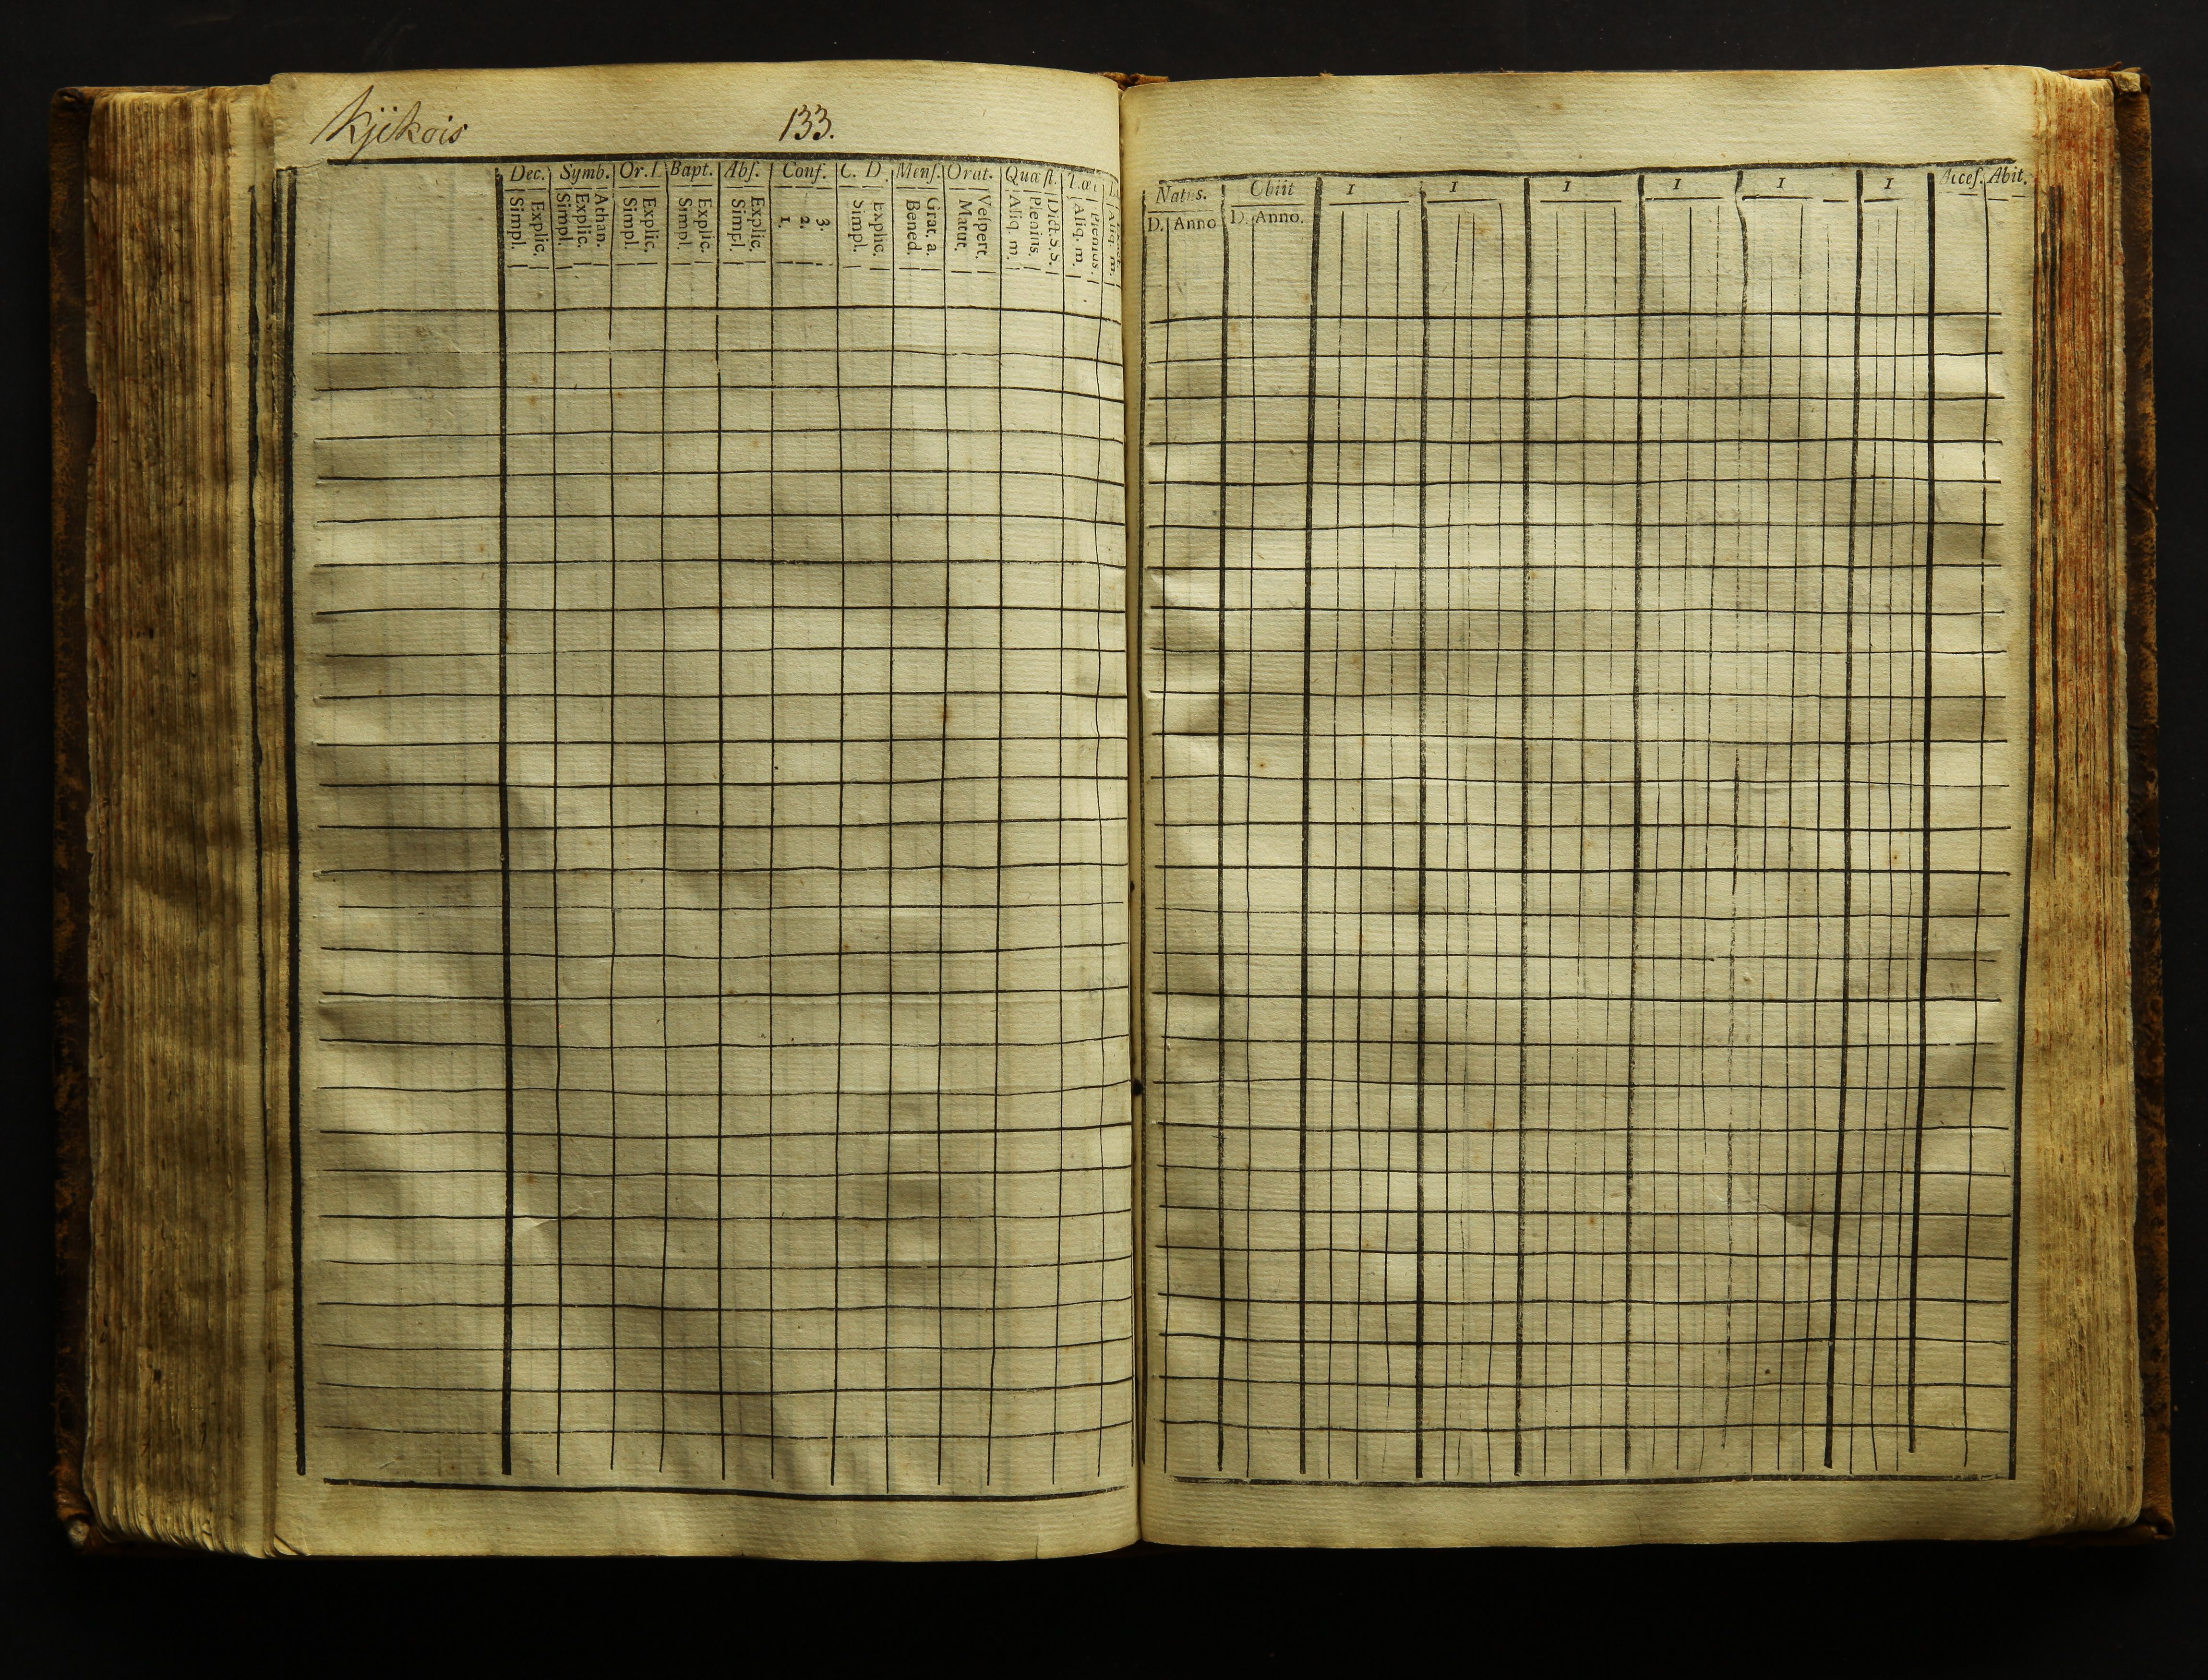 Kjikois 133.
Dec. Symb. Or. I. Bapt. Abſ. Conf. C. D. Menſ. Orat. Quæſt.
Explic. Simpl. Athan. Explic. Simpl. Explic. Simpl. Explic. Simpl. Explic. Simpl. 3. 2. 1. Explic. Simpl. Grat. a. Bened. Veſpert. Matut. Dict. S. S. Plenius. Aliq. m. Plenius. Aliq. m. Aliq. m.
Natus. Obiit 1 1 1 1 1 1 Acceſ. Abit.
D. Anno D. Anno.